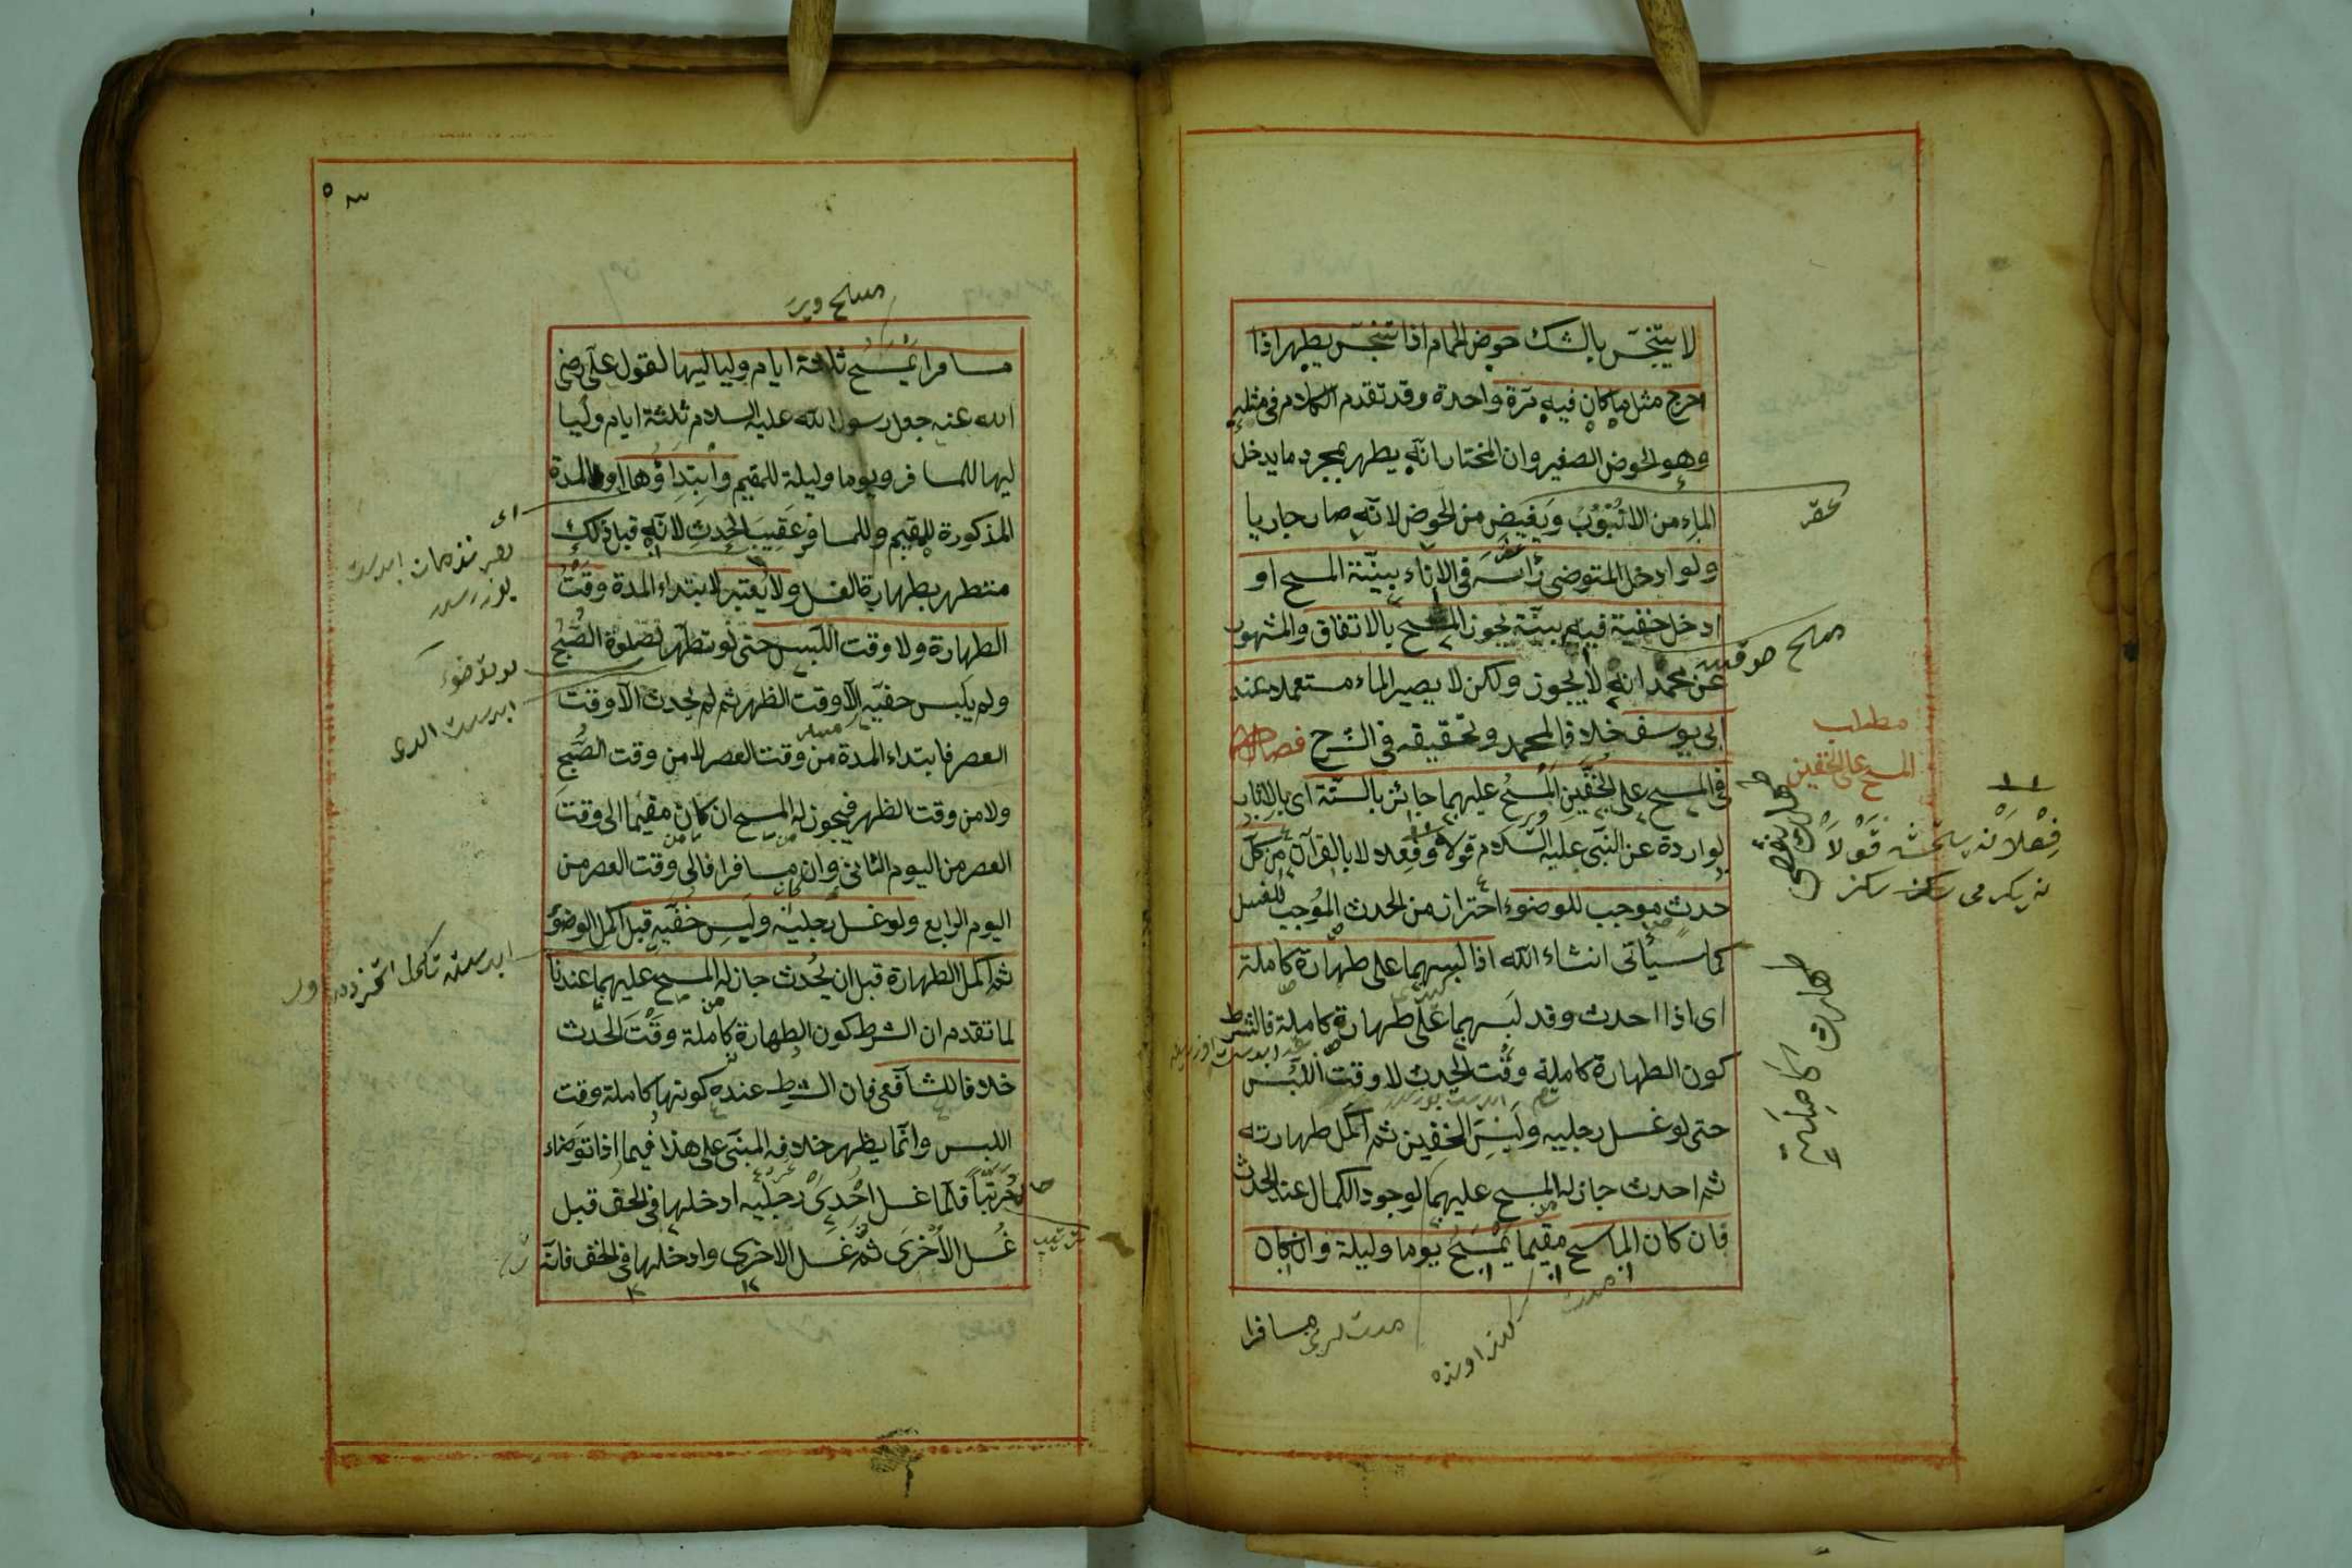 لا يتنجس بالشك حوض الحمام اذا تنجس يطهر اذا
اخرج مثل ما كان فيه مرة واحدة وقد تقدم الكلام فى مثله
وهو الحوض الصغير وان المختار انه يطهر بمجرد ما يدخل
الماء من الانبوب ويفيض من الحوض لانه صار جاريا
ولو ادخل المتوضى رأسه فى الاناء بنية المسح او
ادخل خفيه فيه بنية يجوز المسح بالاتفاق والمشهور
عن محمد انه لا يجوز ولكن لا يصير الماء مستعملا عند
ابى يوسف خلافا لمحمد وتحقيقه فى الشرح فصل
فى المسح على الخفين المسح عليهما جائز بالسنة اى بالاثار
الواردة عن النبى عليه السلام قولا وفعلا لا بالقرآن من كل
حدث موجب للوضوء احتراز من الحدث الموجب للغسل
كما سيأتى انشاء الله اذا لبسهما على طهارة كاملة
اى اذا احدث وقد لبسهما على طهارة كاملة فالشرط
كون الطهارة كاملة وقت الحدث لا وقت اللبس
حتى لو غسل رجليه ولبس الخفين ثم اكمل طهارته
ثم احدث جاز له المسح عليهما لوجود الكمال عند الحدث
فان كان الماسح مقيما يمسح يوما وليلة وان كان
مسافرا
مطلب
المسح على الخفين
فعلا
قولا
طهارت
كاملة
مسافرا يمسح ثلاثة ايام ولياليها لقول على رضى
الله عنه جعل رسول الله عليه السلام ثلثة ايام وليا
ليها للمسافر ويوما وليلة للمقيم وابتداؤها اى المدة
المذكورة للمقيم وللمسافر عقيب الحدث لانه قبل ذلك
متطهر بطهارة الغسل ولا يعتبر لابتداء المدة وقت
الطهارة ولا وقت اللبس حتى لو تطهر لصلوة الصبح
ولم يلبس خفيه الا وقت الظهر ثم لم يحدث الا وقت
العصر فابتداء المدة من وقت العصر لا من وقت الصبح
ولا من وقت الظهر فيجوز له المسح ان كان مقيما الى وقت
العصر من اليوم الثانى وان مسافرا فالى وقت العصر من
اليوم الرابع ولو غسل رجليه ولبس خفيه قبل اكمال الوضوء
ثم اكمل الطهارة قبل ان يحدث جاز له المسح عليهما عندنا
لما تقدم ان الشرط كون الطهارة كاملة وقت الحدث
خلافا للشافعى فان الشرط عنده كونها كاملة وقت
اللبس وانما يظهر خلافه المبنى على هذا فيما اذا توضاء
مرتبا فلما غسل احدى رجليه ادخلها فى الخف قبل
غسل الاخرى ثم غسل الاخرى وادخلها فى الخف فانه
ترتيب